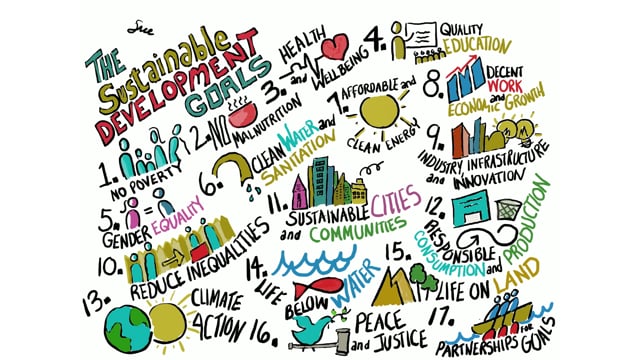 THE
Sustainable
DEVELOPMENT
GOALS
1.
NO POVERTY
2. NO
MALNUTRITION
3. HEALTH
and WELLBEING
4. QUALITY
EDUCATION
5.
GENDER EQUALITY
6. CLEAN WATER and
SANITATION
7. AFFORDABLE and
CLEAN ENERGY
8. DECENT
WORK
and
ECONOMIC GROWTH
9.
INDUSTRY, INFRASTRUCTURE
and INNOVATION
10.
REDUCE INEQUALITIES
11.
SUSTAINABLE CITIES
and COMMUNITIES
12.
RESPONSIBLE
CONSUMPTION and PRODUCTION
13. CLIMATE
ACTION
14.
LIFE
BELOW WATER
15.
LIFE ON LAND
16. PEACE
and JUSTICE
17.
PARTNERSHIPS FOR GOALS